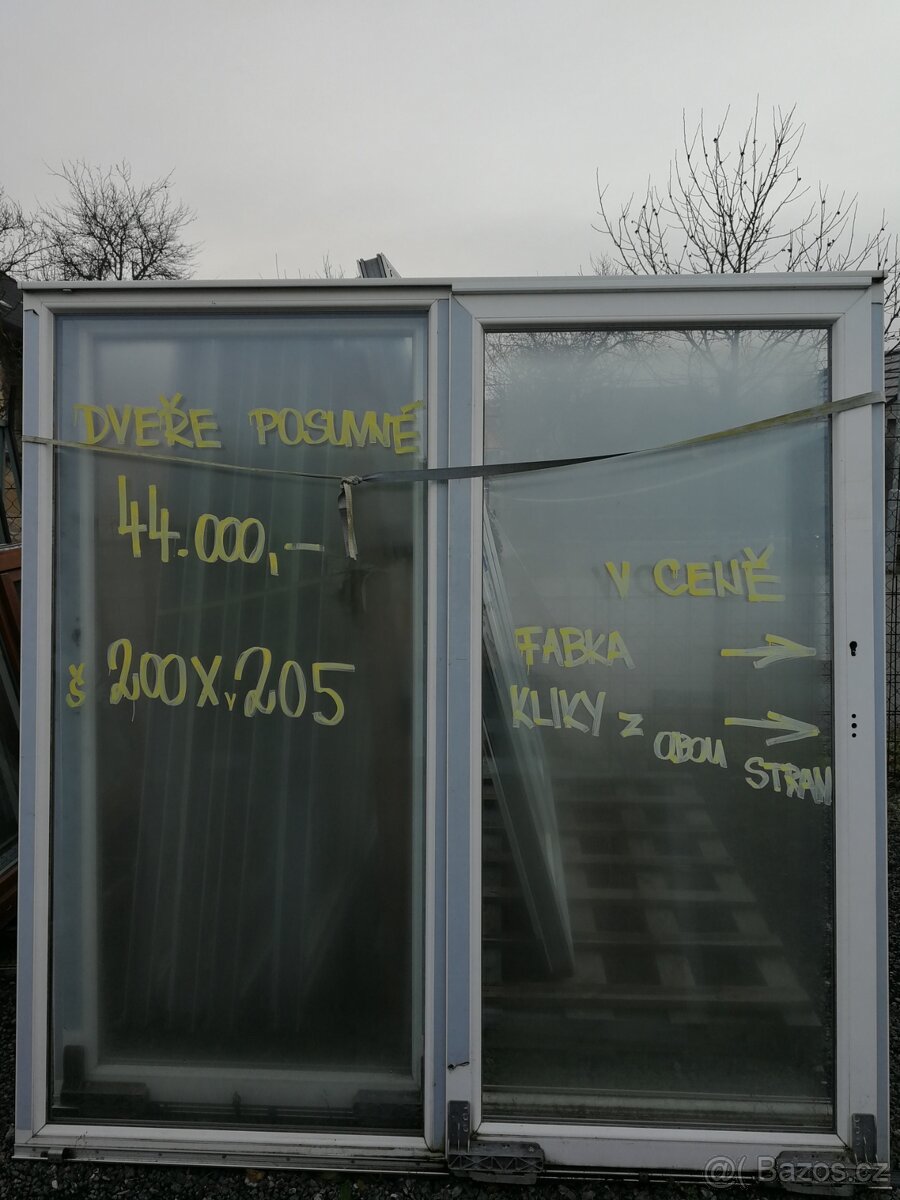 DVEŘE POSUVNÉ
44.000,-
š 200 x v 205
V CENĚ
FABKA →
KLIKY Z →
OBOU
STRAN
@( Bazos.cz